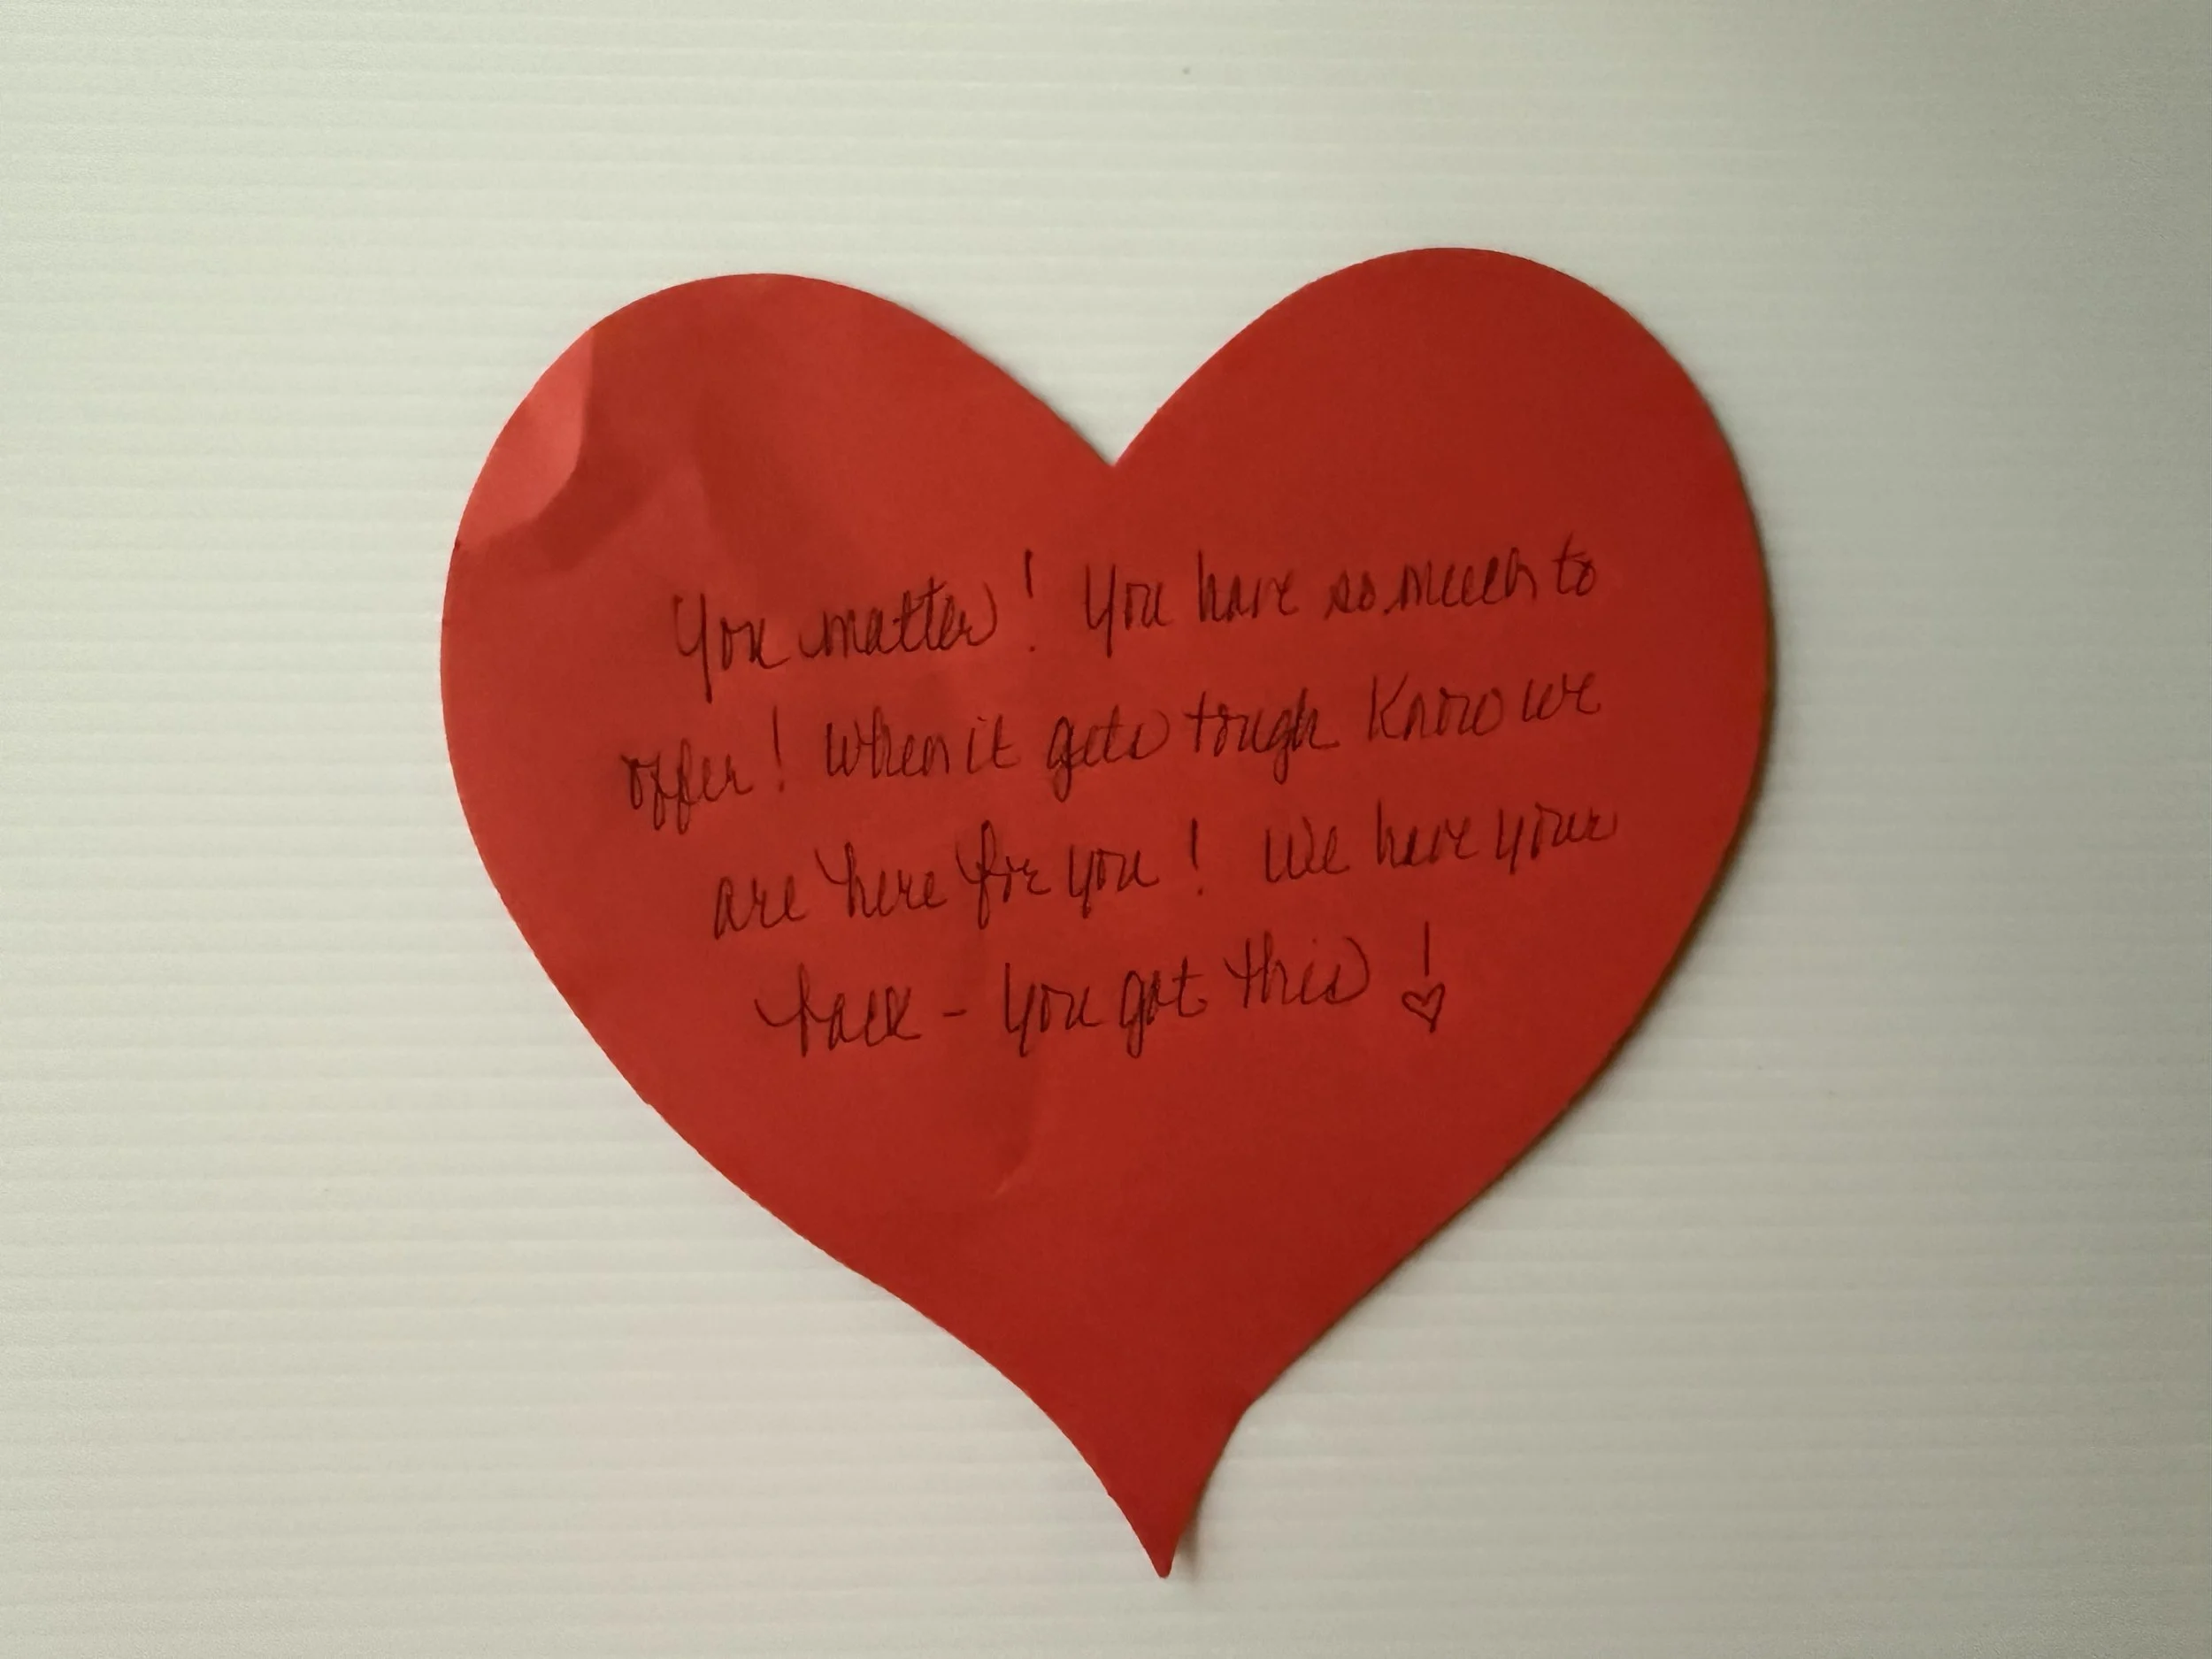 You matter! You have so much to
offer! When it gets tough Know we
are here for you! We have your
back - You got this!